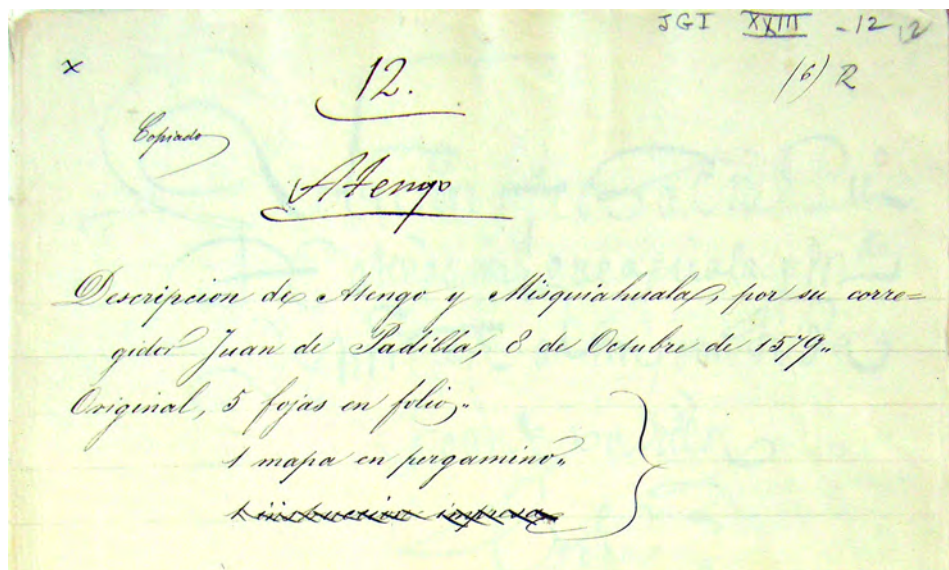 JGI XXIII -12 12
x 12. (6) R
Copiado
Atengo
Descripcion de Atengo y Misquiahuala, por su corre=
gidor Juan de Padilla, 8 de Octubre de 1579„
Original, 5 fojas en folio„
1 mapa en pergamino„
1 instruccion impresa